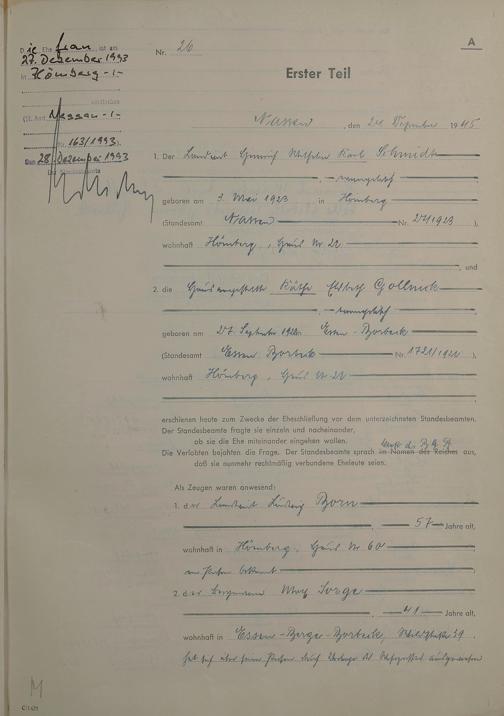 Die Ehefrau ist am
27. Dezember 1993
in Hömberg -/-
verstorben
(St. Amt Nassau -/-
Nr. 163/1993)
Den 28. Dezember 1993
Der Standesbeamte
A
Nr. 26
Erster Teil
Nassau, den 24. Dezember 1945
1. Der Landwirt Heinrich Wilhelm Karl Schmidt
, evangelisch
geboren am 3. Mai 1923 in Hömberg
(Standesamt Nassau Nr. 27/1923),
wohnhaft Hömberg, Haus Nr. 22
, und
2. die Hausangestellte Käthe Elsbeth Gollnick
, evangelisch
geboren am 27. September Essen-Borbeck
(Standesamt Essen Borbeck Nr.
wohnhaft Hömberg, Haus Nr 22
erschienen heute zum Zwecke der Eheschließung vor dem unterzeichneten Standesbeamten.
Der Standesbeamte fragte sie einzeln und nacheinander,
ob sie die Ehe miteinander eingehen wollen.
Die Verlobten bejahten die Frage. Der Standesbeamte sprach im Namen des Reiches aus,
daß sie nunmehr rechtmäßig verbundene Eheleute seien.
Als Zeugen waren anwesend:
1. der Landwirt Ludwig Born
, 57 Jahre alt,
wohnhaft in Hömberg, Haus Nr 60
von Person bekannt
2. der Bergmann Max Sorge
, 41 Jahre alt,
wohnhaft in Essen-Berge-Borbeck,
hat sich über seine Person durch Vorlage des ausgewiesen
M